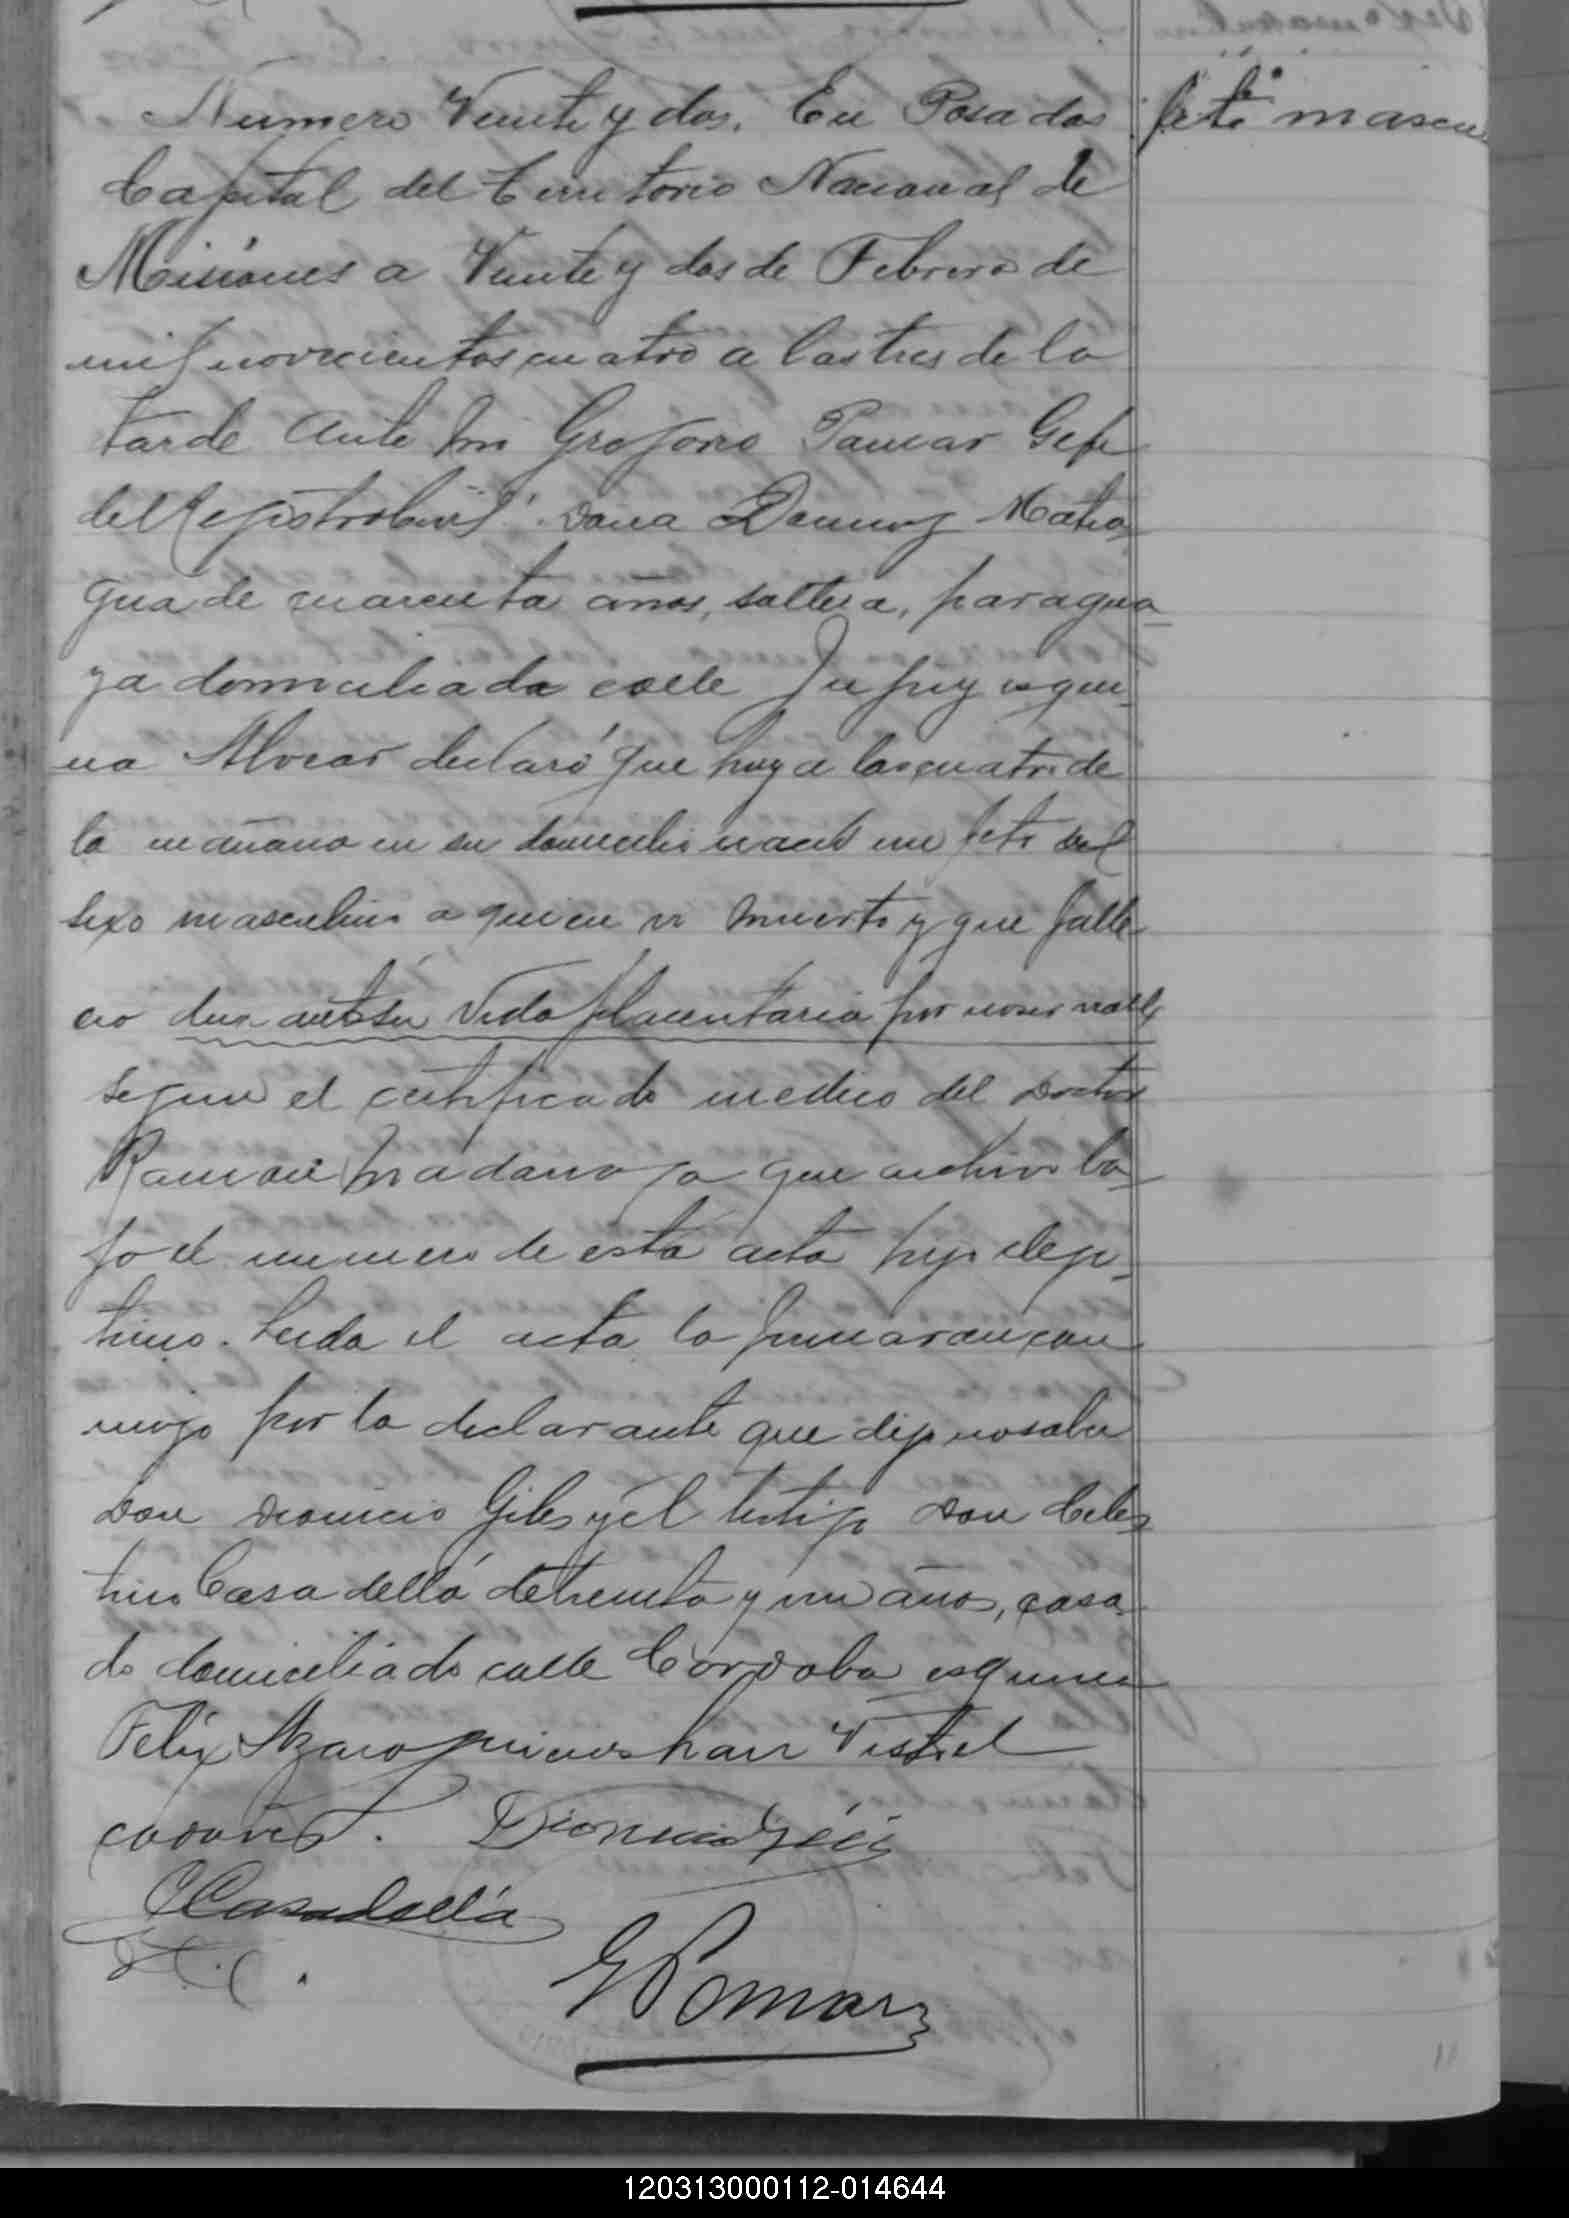 Numero Veinte y dos. En Posadas
feto mascu
Capital del Territorio Nacional de
Misiones a Veinte y dos de Febrero de
mil novecientos cuatro a las tres de la
tarde ante mi Gregorio Pomar Gefe
del Registro Civil. Doña
gua de cuarenta años, soltera, paragua
ya domiciliada calle Jujuy esqui
na Alvear declaró que hoy a las cuatro de
la mañana en su domicilio nació un feto del
sexo masculino a quien vi muerto y que falle
cio durante su vida placentaria por no ser viable
segun el certificado medico del Doctor
Ramon Madariaga que archivo ba
jo el numero de esta acta hijo
timo. Leida el acta la firmaron con
migo por la declarante que dijo no saber
Don Dionicio Giles y el testigo Don Celes
tino Casadellá de treinta y un años, casa
do domiciliado calle Cordoba esquina
Felix Azara quienes han visto el
cadaver. Dionicio Giles
C Casadellá
G Pomar
120313000112-014644